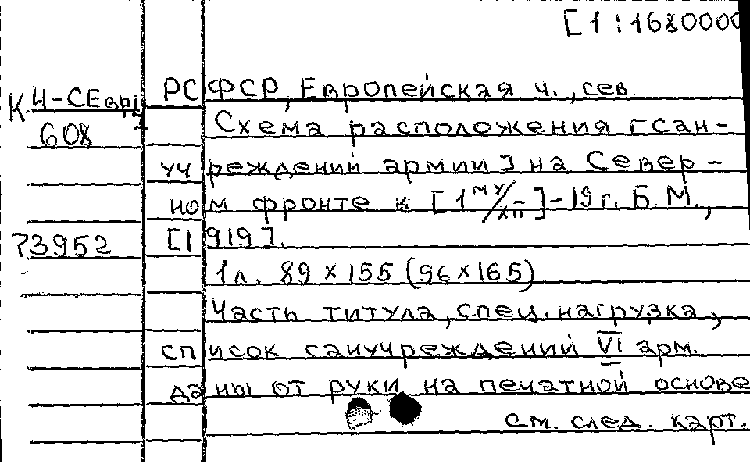 [1:1680000
К Ч-СЕвр
РСФСР, Европейская ч., сев
608
Схема расположения [сан-
учреждений армии] на Север-
ном фронте к [1му/XII]-19г. Б.М.,
73952
[1919].
1л. 89×155 (96×165)
Часть титула, спец. нагрузка,
список санучреждений VI арм.
даны от руки на печатной основе
См. след. карт.